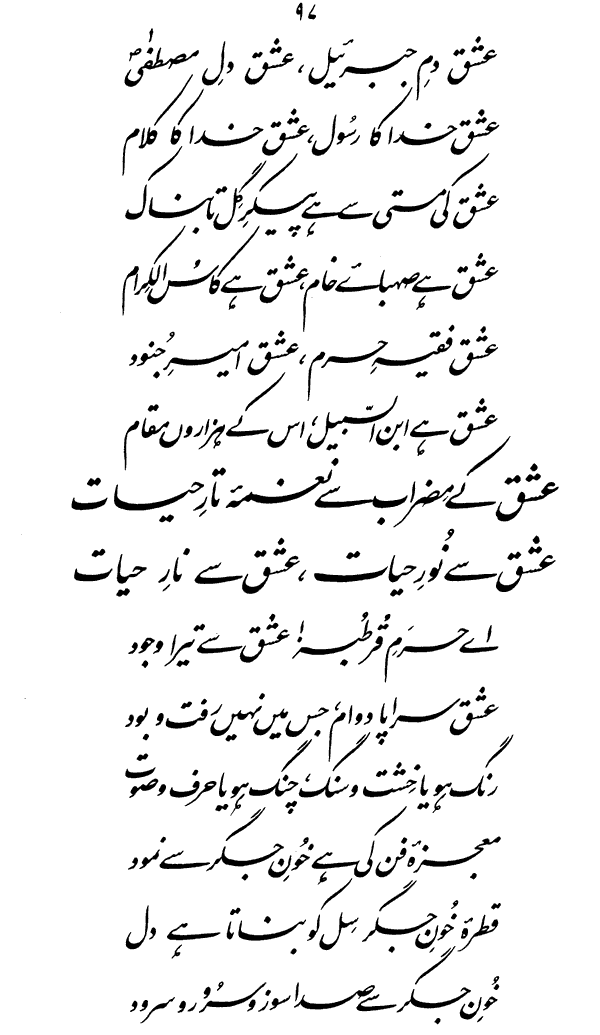 ۹۷
عشق دمِ جبرئیل، عشق دلِ مصطفیٰؐ
عشق خدا کا رسُول، عشق خدا کا کلام
عشق کی مستی سے ہے پیکرِ گِل تابناک
عشق ہے صہبائے خام، عشق ہے کاسُ الکِرام
عشق فقیہِ حرم، عشق امیرِ جُنود
عشق ہے ابن السّبیل، اس کے ہزاروں مقام
عشق کے مِضراب سے نغمۂ تارِ حیات
عشق سے نُورِ حیات، عشق سے نارِ حیات
اے حرَمِ قُرطُبہ! عشق سے تیرا وجود
عشق سراپا دوام، جس میں نہیں رفت و بود
رنگ ہو یا خِشت و سنگ، چنگ ہو یا حرف و صوت
معجزۂ فن کی ہے خُونِ جگر سے نمود
قطرۂ خُونِ جگر سِل کو بناتا ہے دل
خُونِ جگر سے صدا سوز و سرُور و سرود